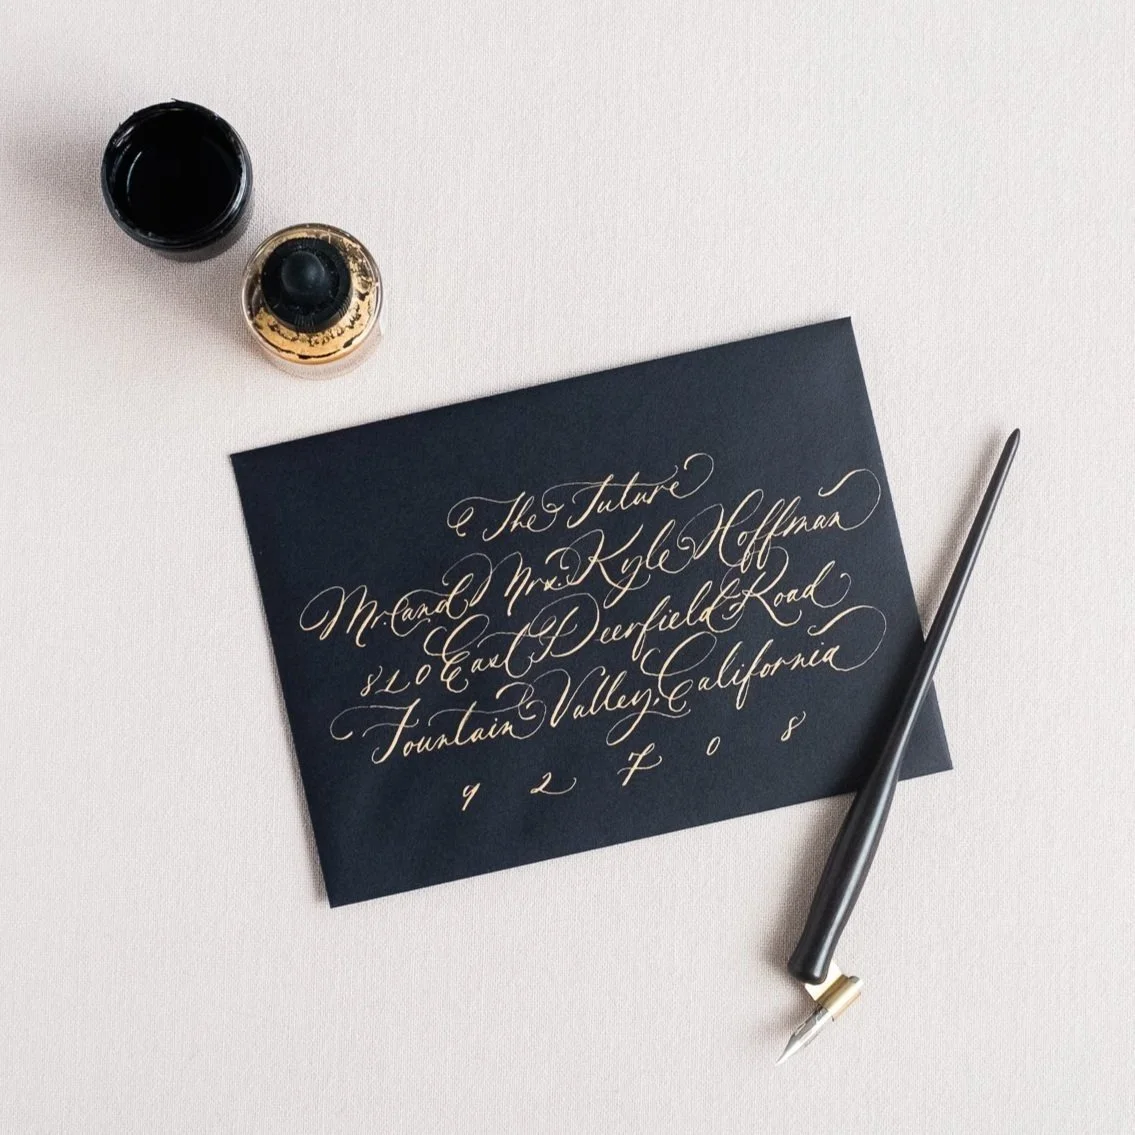 The Future
Mr. and Mrs. Kyle Hoffman
820 East Deerfield Road
Fountain Valley, California
92708